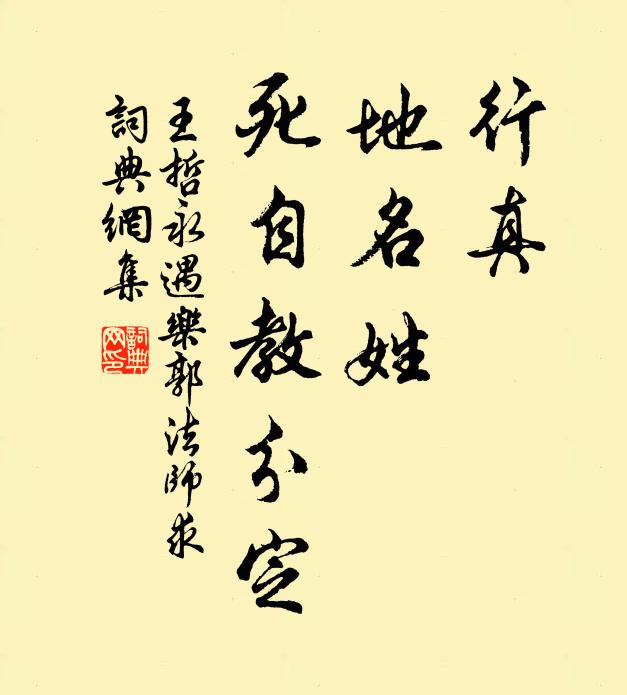 行真
地名姓
死自教分定
王哲永遇樂郭法師求
詞典網集
詞典網印